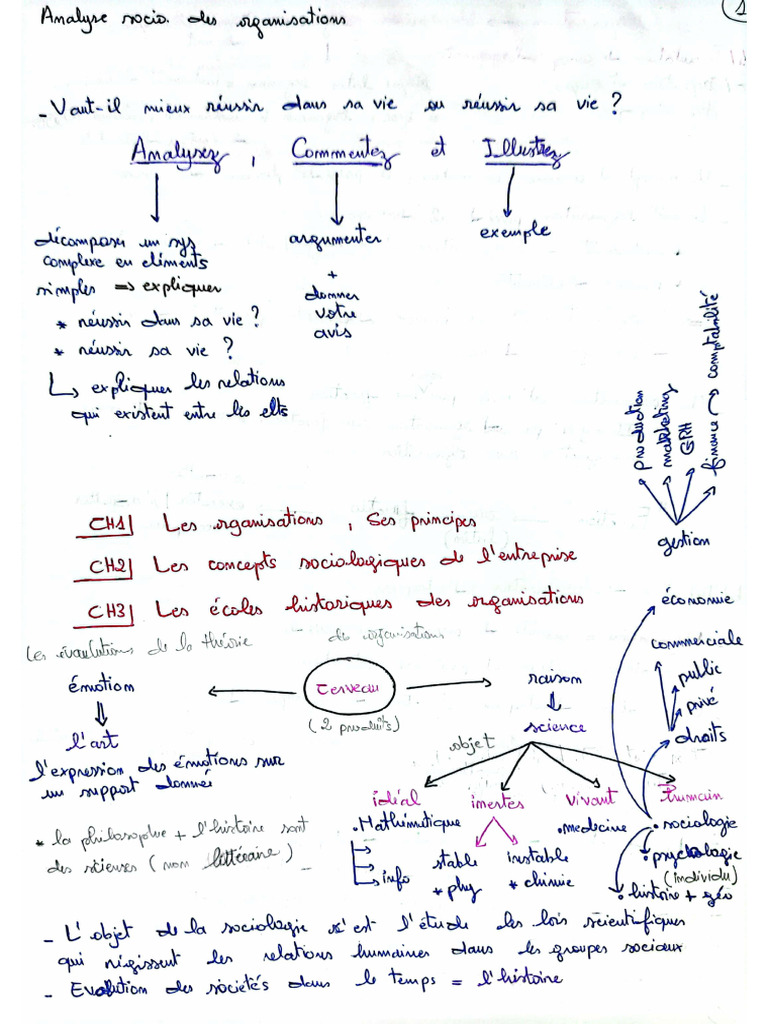 Analyse socio. des organisations
1
- Vaut-il mieux réussir dans sa vie ou réussir sa vie ?
Analysez, Commentez et Illustrez
décomposer un sys
complexe en eléments
simples => expliquer
* réussir dans sa vie ?
* réussir sa vie ?
expliquer les relations
qui existent entre les elts
argumenter
+
donner
votre
avis
exemple
production
marketing
GRH
finance → comptabilité
gestion
CH1| Les organisations, Ses principes
CH2| Les concepts sociologiques de l'entreprise
CH3| Les écoles historiques des organisations
Les évaulutions de la théorie des organisations
économie
commerciale
public
privé
droits
émotion
l'art
l'expression des émotions sur
un support donnée
Cerveau
(2 produits)
raison
science
objet
idéal inertes vivant humain
. Mathématique
info
stable
* phy
instable
* chimie
. medecine
. sociologie
. psychologie
(individu)
. histoire + géo
* la philosophie + l'histoire sont
des sciences (non littéraire)
- L'objet de la sociologie s'est l'étude les lois scientifiques
qui régissent les relations humaines dans les groupes sociaux
- Evolution des sociétés dans le temps = l'histoire